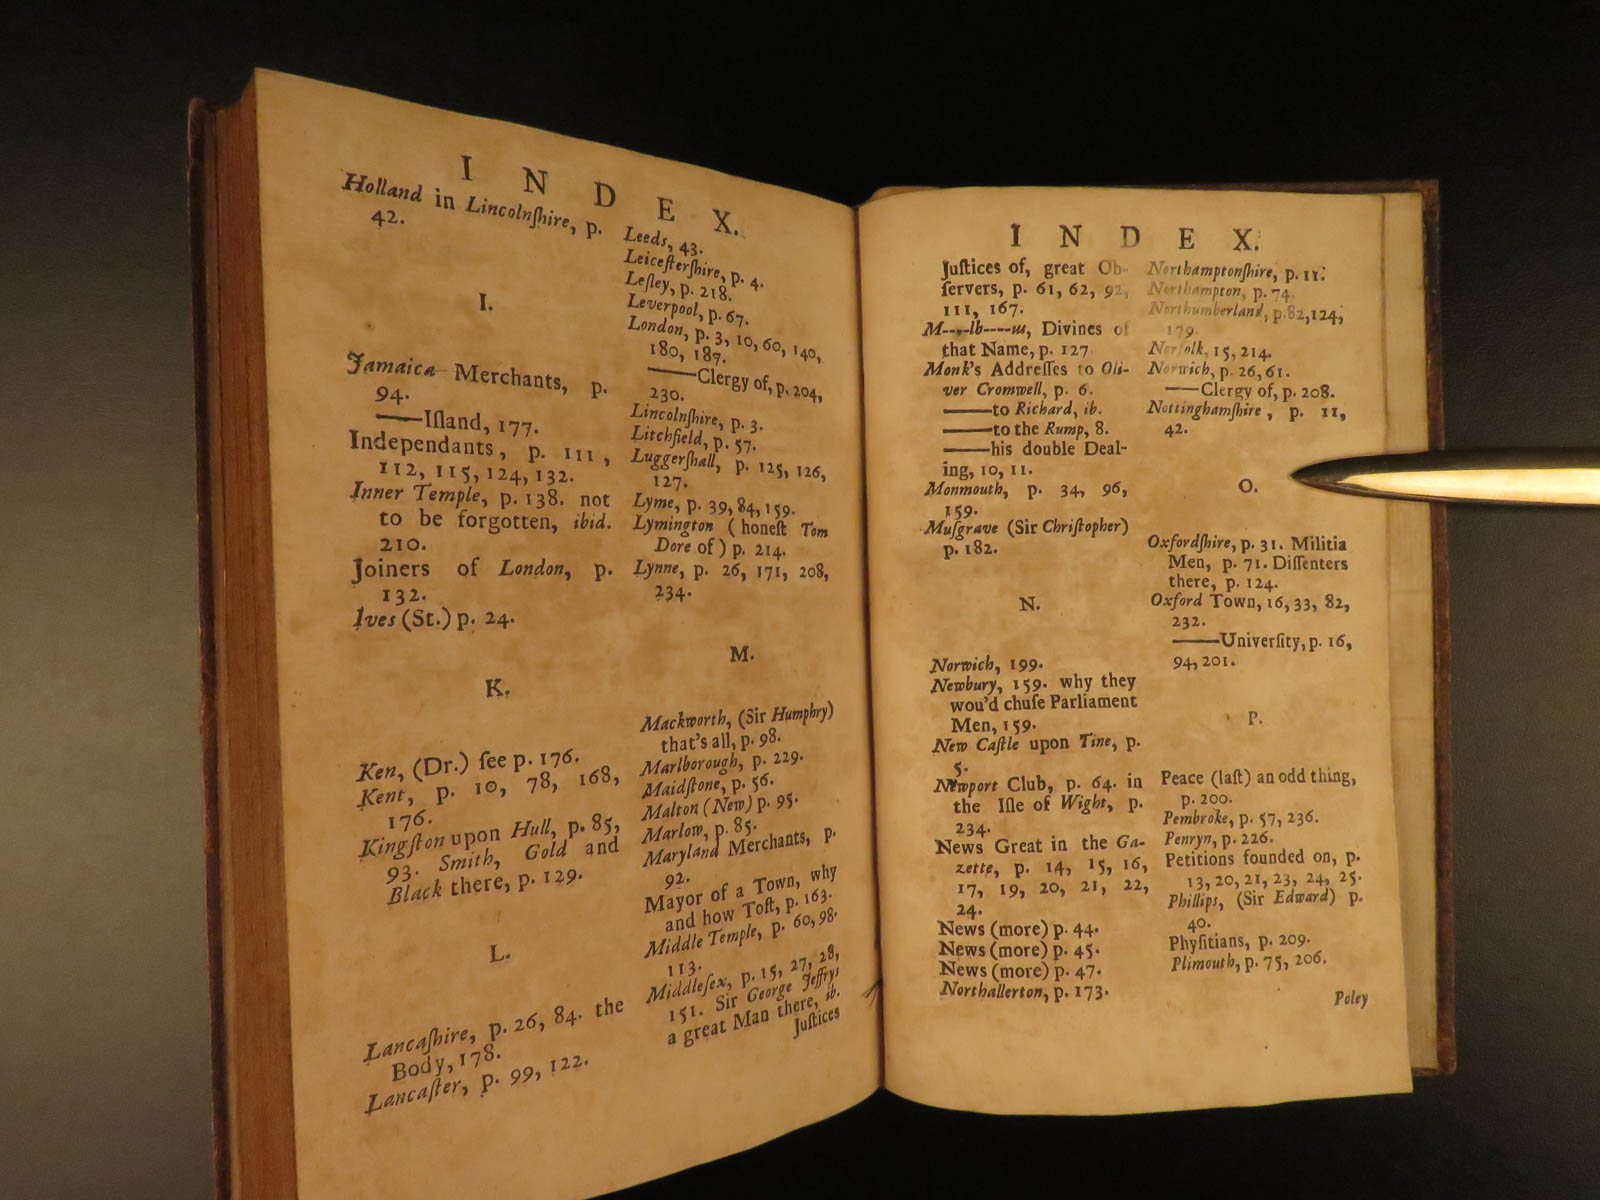 INDEX.
Holland in Lincolnſhire, p.
42.
I.
Jamaica Merchants, p.
94.
——Iſland, 177.
Independants, p. 111,
112, 115, 124, 132.
Inner Temple, p. 138. not
to be forgotten, ibid.
210.
Joiners of London, p.
132.
Ives (St.) p. 24.
K.
Ken, (Dr.) ſee p. 176.
Kent, p. 10, 78, 168,
176.
Kingſton upon Hull, p. 85,
93. Smith, Gold and
Black there, p. 129.
L.
Lancaſhire, p. 26, 84. the
Body, 178.
Lancaſter, p. 99, 122.
Leeds, 43.
Leiceſterſhire, p. 4.
Leſley, p. 218.
Leverpool, p. 67.
London, p. 3, 10, 60, 140,
180, 187.
——Clergy of, p. 204,
230.
Lincolnſhire, p. 3.
Litchfield, p. 57.
Luggerſhall, p. 125, 126,
127.
Lyme, p. 39, 84, 159.
Lymington (honeſt Tom
Dore of) p. 214.
Lynne, p. 26, 171, 208,
234.
M.
Mackworth, (Sir Humphry)
that's all, p. 98.
Marlborough, p. 229.
Maidſtone, p. 56.
Malton (New) p. 95.
Marlow, p. 85.
Maryland Merchants, p.
92.
Mayor of a Town, why
and how Toſt, p. 163.
Middle Temple, p. 60, 98.
113.
Middleſex, p. 15, 27, 28,
151. Sir George Jeffrys
a great Man there, ib.
Juſtices
INDEX.
Juſtices of, great Ob-
ſervers, p. 61, 62, 92,
111, 167.
M----lb----us, Divines of
that Name, p. 127
Monk's Addreſſes to Oli-
ver Cromwell, p. 6.
——to Richard, ib.
——to the Rump, 8.
——his double Deal-
ing, 10, 11.
Monmouth, p. 34, 96,
159.
Muſgrave (Sir Chriſtopher)
p. 182.
N.
Norwich, 199.
Newbury, 159. why they
wou'd chuſe Parliament
Men, 159.
New Caſtle upon Tine, p.
5.
Newport Club, p. 64. in
the Iſle of Wight, p.
234.
News Great in the Ga-
zette, p. 14, 15, 16,
17, 19, 20, 21, 22,
24.
News (more) p. 44.
News (more) p. 45.
News (more) p. 47.
Northallerton, p. 173.
Northamptonſhire, p. 11.
Northampton, p. 74.
Northumberland, p. 82, 124,
179.
Norfolk, 15, 214.
Norwich, p. 26, 61.
——Clergy of, p. 208.
Nottinghamſhire, p. 11,
42.
O.
Oxfordſhire, p. 31. Militia
Men, p. 71. Diſſenters
there, p. 124.
Oxford Town, 16, 33, 82,
232.
——Univerſity, p. 16,
94, 201.
P.
Peace (laſt) an odd thing,
p. 200.
Pembroke, p. 57, 236.
Penryn, p. 226.
Petitions founded on, p.
13, 20, 21, 23, 24, 25.
Phillips, (Sir Edward) p.
40.
Phyſitians, p. 209.
Plimouth, p. 75, 206.
Poley